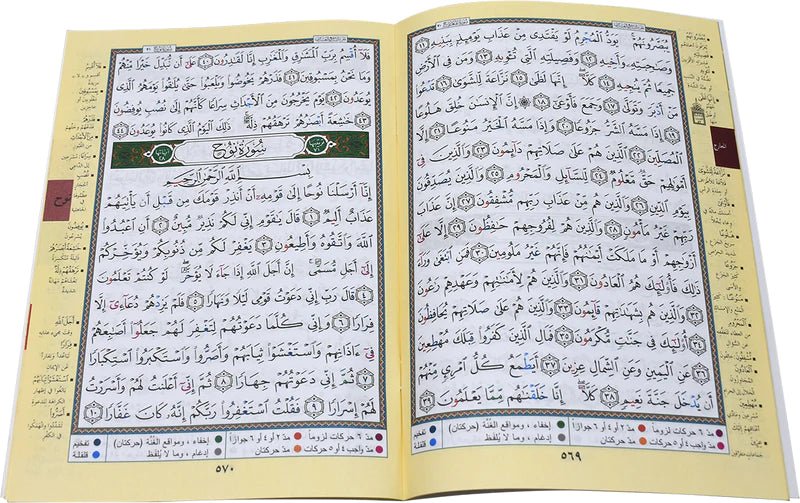 يُبَصَّرُونَهُمْ يَوَدُّ الْمُجْرِمُ لَوْ يَفْتَدِى مِنْ عَذَابِ يَوْمِئِذٍ بِبَنِيهِ ١١
وَصَٰحِبَتِهِۦ وَأَخِيهِ ١٢ وَفَصِيلَتِهِ الَّتِى تُـْٔوِيهِ ١٣ وَمَن فِى الْأَرْضِ
جَمِيعًا ثُمَّ يُنجِيهِ ١٤ كَلَّآ إِنَّهَا لَظَىٰ ١٥ نَزَّاعَةً لِّلشَّوَىٰ ١٦ تَدْعُوا۟
مَنْ أَدْبَرَ وَتَوَلَّىٰ ١٧ وَجَمَعَ فَأَوْعَىٰٓ ١٨ ۞ إِنَّ الْإِنسَٰنَ خُلِقَ هَلُوعًا
١٩ إِذَا مَسَّهُ الشَّرُّ جَزُوعًا ٢٠ وَإِذَا مَسَّهُ الْخَيْرُ مَنُوعًا ٢١ إِلَّا
الْمُصَلِّينَ ٢٢ الَّذِينَ هُمْ عَلَىٰ صَلَاتِهِمْ دَآئِمُونَ ٢٣ وَالَّذِينَ فِىٓ
أَمْوَٰلِهِمْ حَقٌّ مَّعْلُومٌ ٢٤ لِّلسَّآئِلِ وَالْمَحْرُومِ ٢٥ وَالَّذِينَ يُصَدِّقُونَ
بِيَوْمِ الدِّينِ ٢٦ وَالَّذِينَ هُم مِّنْ عَذَابِ رَبِّهِم مُّشْفِقُونَ ٢٧ إِنَّ عَذَابَ
رَبِّهِمْ غَيْرُ مَأْمُونٍ ٢٨ وَالَّذِينَ هُمْ لِفُرُوجِهِمْ حَٰفِظُونَ ٢٩ إِلَّا عَلَىٰٓ
أَزْوَٰجِهِمْ أَوْ مَا مَلَكَتْ أَيْمَٰنُهُمْ فَإِنَّهُمْ غَيْرُ مَلُومِينَ ٣٠ فَمَنِ ابْتَغَىٰ وَرَآءَ
ذَٰلِكَ فَأُو۟لَٰٓئِكَ هُمُ الْعَادُونَ ٣١ وَالَّذِينَ هُمْ لِأَمَٰنَٰتِهِمْ وَعَهْدِهِمْ رَٰعُونَ
٣٢ وَالَّذِينَ هُم بِشَهَٰدَٰتِهِمْ قَآئِمُونَ ٣٣ وَالَّذِينَ هُمْ عَلَىٰ صَلَاتِهِمْ يُحَافِظُونَ
٣٤ أُو۟لَٰٓئِكَ فِى جَنَّٰتٍ مُّكْرَمُونَ ٣٥ فَمَالِ الَّذِينَ كَفَرُوا۟ قِبَلَكَ مُهْطِعِينَ
٣٦ عَنِ الْيَمِينِ وَعَنِ الشِّمَالِ عِزِينَ ٣٧ أَيَطْمَعُ كُلُّ امْرِئٍ مِّنْهُمْ
أَن يُدْخَلَ جَنَّةَ نَعِيمٍ ٣٨ كَلَّآ إِنَّا خَلَقْنَٰهُم مِّمَّا يَعْلَمُونَ ٣٩
مدّ ٦ حركات لزوماً مدّ ٢ أو ٤ أو ٦ جوازاً إخفاء، ومواقع الغُنَّة (حركتان) تفخيم
مدّ واجب ٤ أو ٥ حركات مدّ حركتان إدغام، وما لا يُلفَظ قلقلة
٥٦٩
المعارج
فَلَآ أُقْسِمُ بِرَبِّ الْمَشَٰرِقِ وَالْمَغَٰرِبِ إِنَّا لَقَٰدِرُونَ ٤٠ عَلَىٰٓ أَن نُّبَدِّلَ خَيْرًا مِّنْهُمْ
وَمَا نَحْنُ بِمَسْبُوقِينَ ٤١ فَذَرْهُمْ يَخُوضُوا۟ وَيَلْعَبُوا۟ حَتَّىٰ يُلَٰقُوا۟ يَوْمَهُمُ الَّذِى
يُوعَدُونَ ٤٢ يَوْمَ يَخْرُجُونَ مِنَ الْأَجْدَاثِ سِرَاعًا كَأَنَّهُمْ إِلَىٰ نُصُبٍ يُوفِضُونَ
٤٣ خَٰشِعَةً أَبْصَٰرُهُمْ تَرْهَقُهُمْ ذِلَّةٌ ذَٰلِكَ الْيَوْمُ الَّذِى كَانُوا۟ يُوعَدُونَ ٤٤
سُورَةُ نُوحٍ
بِسْمِ اللَّهِ الرَّحْمَٰنِ الرَّحِيمِ
إِنَّآ أَرْسَلْنَا نُوحًا إِلَىٰ قَوْمِهِۦٓ أَنْ أَنذِرْ قَوْمَكَ مِن قَبْلِ أَن يَأْتِيَهُمْ
عَذَابٌ أَلِيمٌ ١ قَالَ يَٰقَوْمِ إِنِّى لَكُمْ نَذِيرٌ مُّبِينٌ ٢ أَنِ اعْبُدُوا۟
اللَّهَ وَاتَّقُوهُ وَأَطِيعُونِ ٣ يَغْفِرْ لَكُم مِّن ذُنُوبِكُمْ وَيُؤَخِّرْكُمْ
إِلَىٰٓ أَجَلٍ مُّسَمًّى إِنَّ أَجَلَ اللَّهِ إِذَا جَآءَ لَا يُؤَخَّرُ لَوْ كُنتُمْ تَعْلَمُونَ
٤ قَالَ رَبِّ إِنِّى دَعَوْتُ قَوْمِى لَيْلًا وَنَهَارًا ٥ فَلَمْ يَزِدْهُمْ دُعَآءِىٓ إِلَّا
فِرَارًا ٦ وَإِنِّى كُلَّمَا دَعَوْتُهُمْ لِتَغْفِرَ لَهُمْ جَعَلُوٓا۟ أَصَٰبِعَهُمْ
فِىٓ ءَاذَانِهِمْ وَاسْتَغْشَوْا۟ ثِيَابَهُمْ وَأَصَرُّوا۟ وَاسْتَكْبَرُوا۟ اسْتِكْبَارًا
٧ ثُمَّ إِنِّى دَعَوْتُهُمْ جِهَارًا ٨ ثُمَّ إِنِّىٓ أَعْلَنتُ لَهُمْ وَأَسْرَرْتُ
لَهُمْ إِسْرَارًا ٩ فَقُلْتُ اسْتَغْفِرُوا۟ رَبَّكُمْ إِنَّهُۥ كَانَ غَفَّارًا ١٠
مدّ ٦ حركات لزوماً مدّ ٢ أو ٤ أو ٦ جوازاً إخفاء، ومواقع الغُنَّة (حركتان) تفخيم
مدّ واجب ٤ أو ٥ حركات مدّ حركتان إدغام، وما لا يُلفَظ قلقلة
٥٧٠
نوح